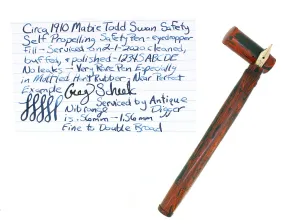 Circa 1910 Mabie Todd Swan Safety
Self Propelling Safety Pen - Eyedropper
Fill - Serviced on 2-1-2020 cleaned,
buffed, & polished - 12345 ABCDE
No leaks - Very Rare Pen Especially
in Mottled Hard Rubber, Near Perfect
Example
Serviced by Antique
Nib range Digger
is .56mm - 1.56mm
Fine to Double Broad